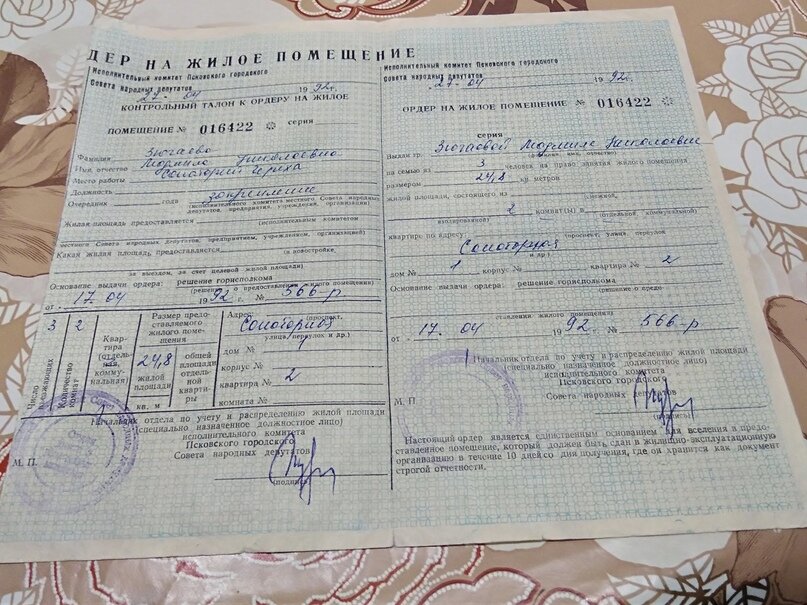 ДЕР НА ЖИЛОЕ ПОМЕЩЕНИЕ
Исполнительный комитет Псковского городского
Совета народных депутатов
27-04 1992г.
КОНТРОЛЬНЫЙ ТАЛОН К ОРДЕРУ НА ЖИЛОЕ
ПОМЕЩЕНИЕ № 016422 серия
Фамилия
Имя, отчество Людмила Николаевна
Место работы Санаторий Череха
Должность закрепление
Очередник года (исполнительного комитета местного Совета народных
депутатов, предприятия, учреждения, организации)
Жилая площадь предоставляется (исполнительным комитетом
местного Совета народных депутатов, предприятием, учреждением, организацией)
Какая жилая площадь, предоставляется (в новостройке,
за выездом, за счет целевой жилой площади)
Основание выдачи ордера: решение горисполкома
(решения о предоставлении жилого помещения)
от 17.04 1992 г. № 566-р
Число въезжающих 3
Количество комнат 2
Квартира (отдельная, коммунальная)
Размер предоставляемого жилого помещения
24,8 жилой площади кв. м
общей площади отдельной квартиры
Адрес: Санаторная
(проспект, улица, переулок и др.)
дом № 1
корпус №
квартира № 2
комната №
Начальник отдела по учету и распределению жилой площади
(специально назначенное должностное лицо)
исполнительного комитета
Псковского городского
М. П. Совета народных депутатов
(подпись)
Исполнительный комитет Псковского городского
Совета народных депутатов
27-04 1992г.
ОРДЕР НА ЖИЛОЕ ПОМЕЩЕНИЕ № 016422
серия
Выдан гр. Людмиле Николаевне
(фамилия, имя, отчество)
на семью из 3 человек на право занятия жилого помещения
размером 24,8 кв метров
жилой площади, состоящего из (смежной,
изолированной) 2 комнат(ы) в (отдельной, коммунальной)
квартире по адресу (проспект, улица, переулок
Санаторная и др.)
дом № 1 корпус № квартира № 2
Основание выдачи ордера: решение горисполкома
(решение о предо-
ставлении жилого помещения)
от 17.04 1992 № 566-р
Начальник отдела по учету и распределению жилой площади
(специально назначенное должностное лицо)
исполнительного комитета
Псковского городского
М. П. Совета народных депутатов
(подпись)
Настоящий ордер является единственным основанием для вселения в предо-
ставленное помещение, который должен быть сдан в жилищно-эксплуатационную
организацию в течение 10 дней со дня получения, где он хранится как документ
строгой отчетности.